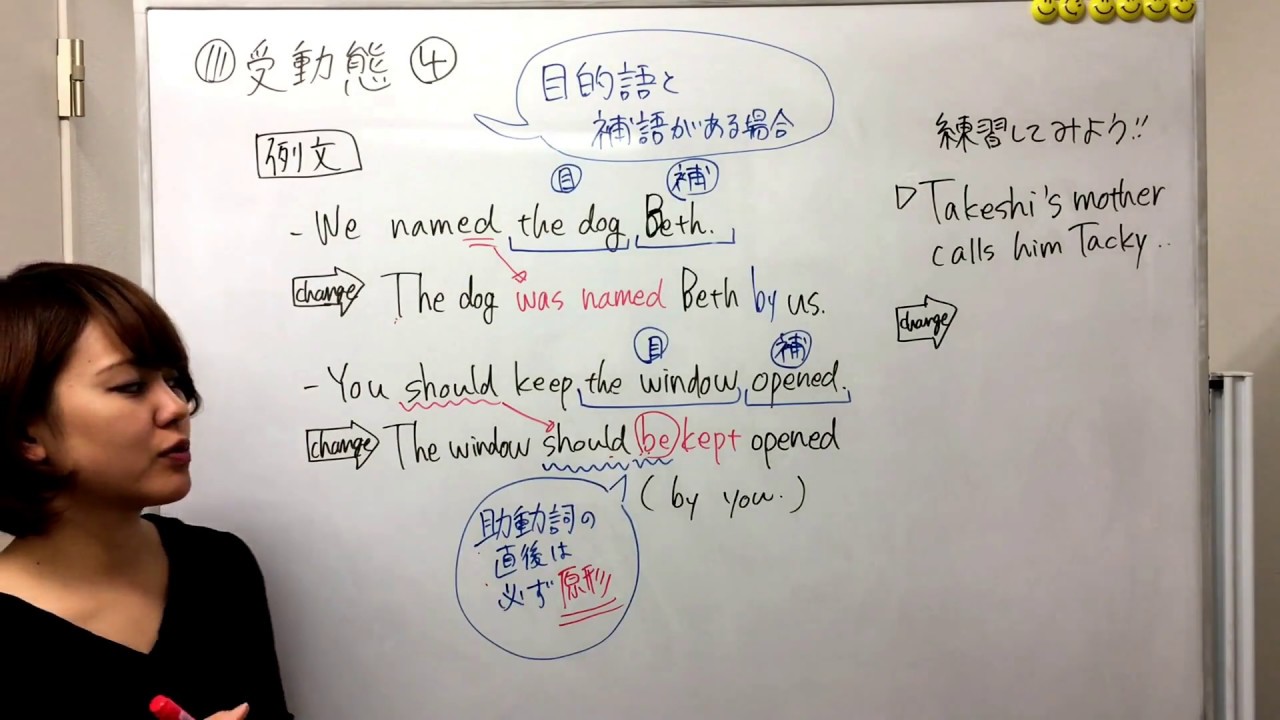 ⑪受動態④
目的語と
補語がある場合
例文
目 補
- We named the dog Beth.
change The dog was named Beth by us.
目 補
- You should keep the window opened.
change The window should be kept opened
(by you.)
助動詞の
直後は
必ず原形
練習してみよう!!
▷Takeshi's mother
calls him Tacky..
change